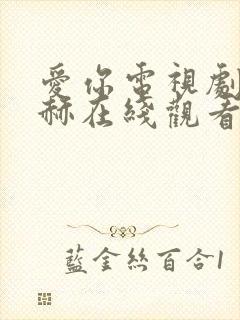 愛你電視劇
赫在綫觀看
藍金絲百合1